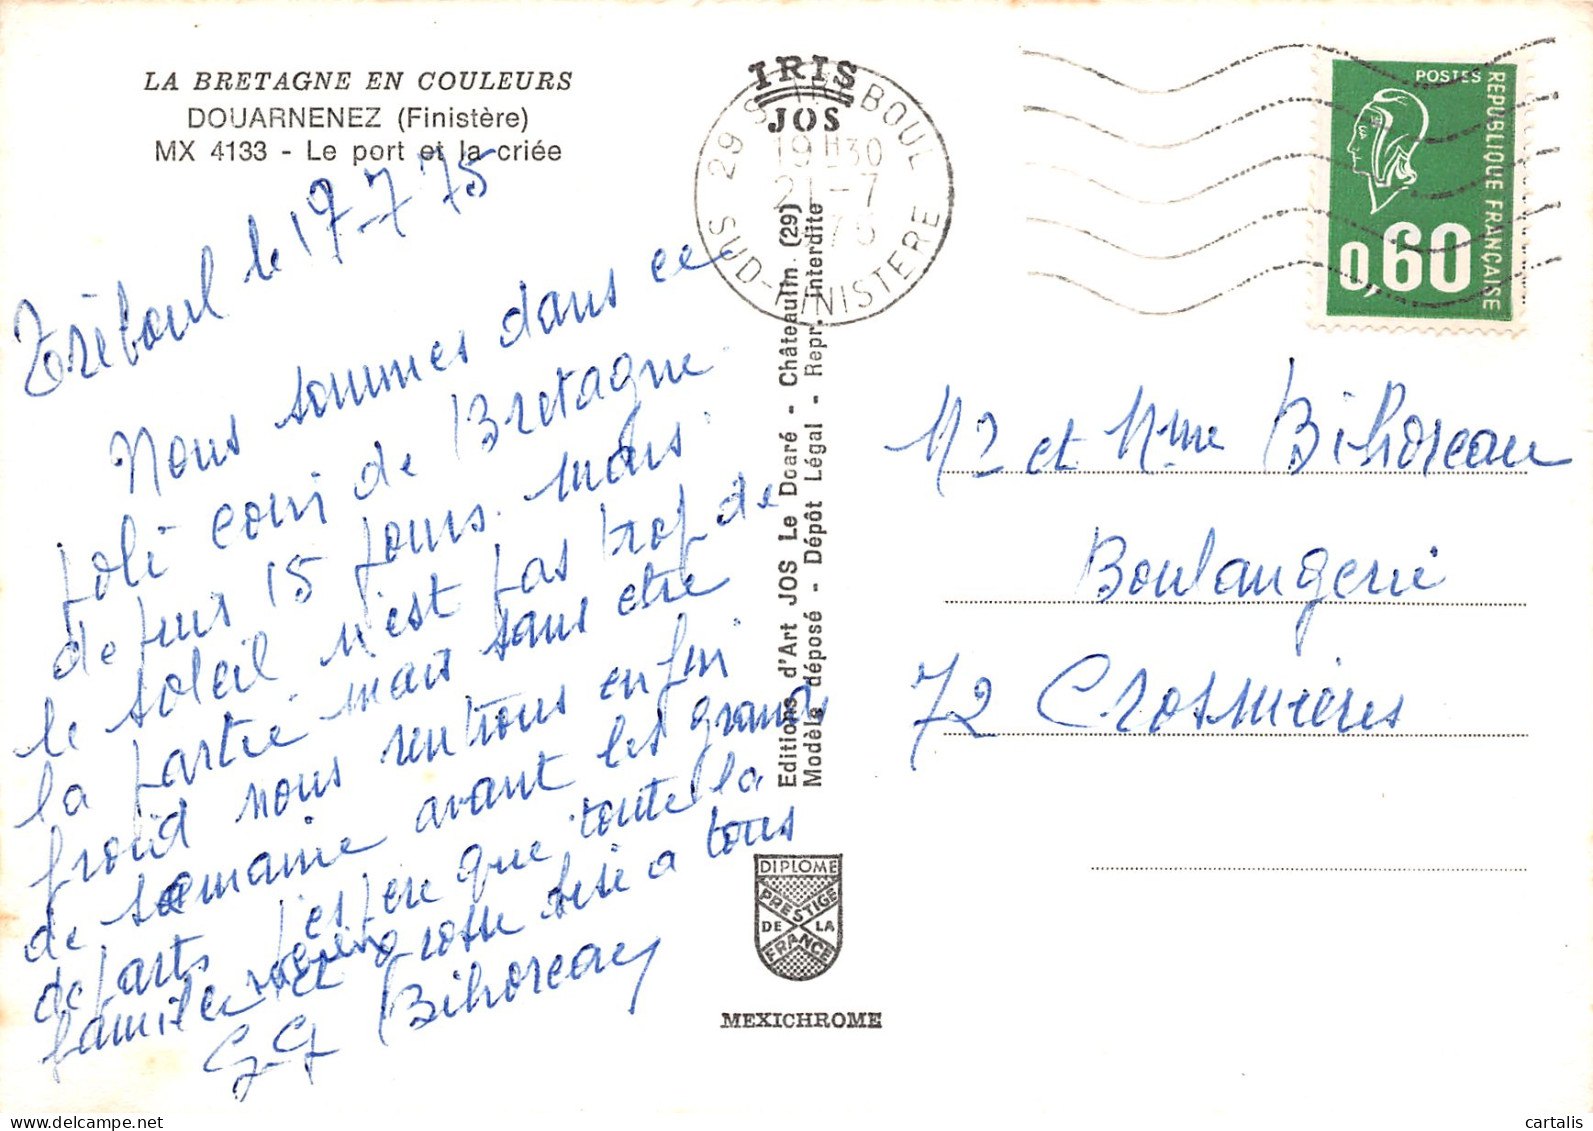 LA BRETAGNE EN COULEURS
DOUARNENEZ (Finistère)
MX 4133 - Le port et la criée
Tréboul le 19-7-75
Nous sommes dans ce
joli coin de Bretagne
depuis 15 jours. Mais
le soleil n'est pas trop de
la partie. mais sans etre
froid nous rentrons en fin
de semaine avant les grands
departs j'espère que toute la
famille
et grosse bise a tous
G-G Bihoreau
IRIS
JOS
29 TREBOUL
19H30
21-7
SUD-FINISTERE
Editions d'Art JOS Le Doaré - Châteaulin (29)
Modèle déposé - Dépôt Légal - Repr. Interdite
DIPLOME
PRESTIGE
DE LA
FRANCE
MEXICHROME
POSTES
REPUBLIQUE FRANÇAISE
0,60
Mr et Mme Bihoreau
Boulangerie
72 Crosmières
cartalis